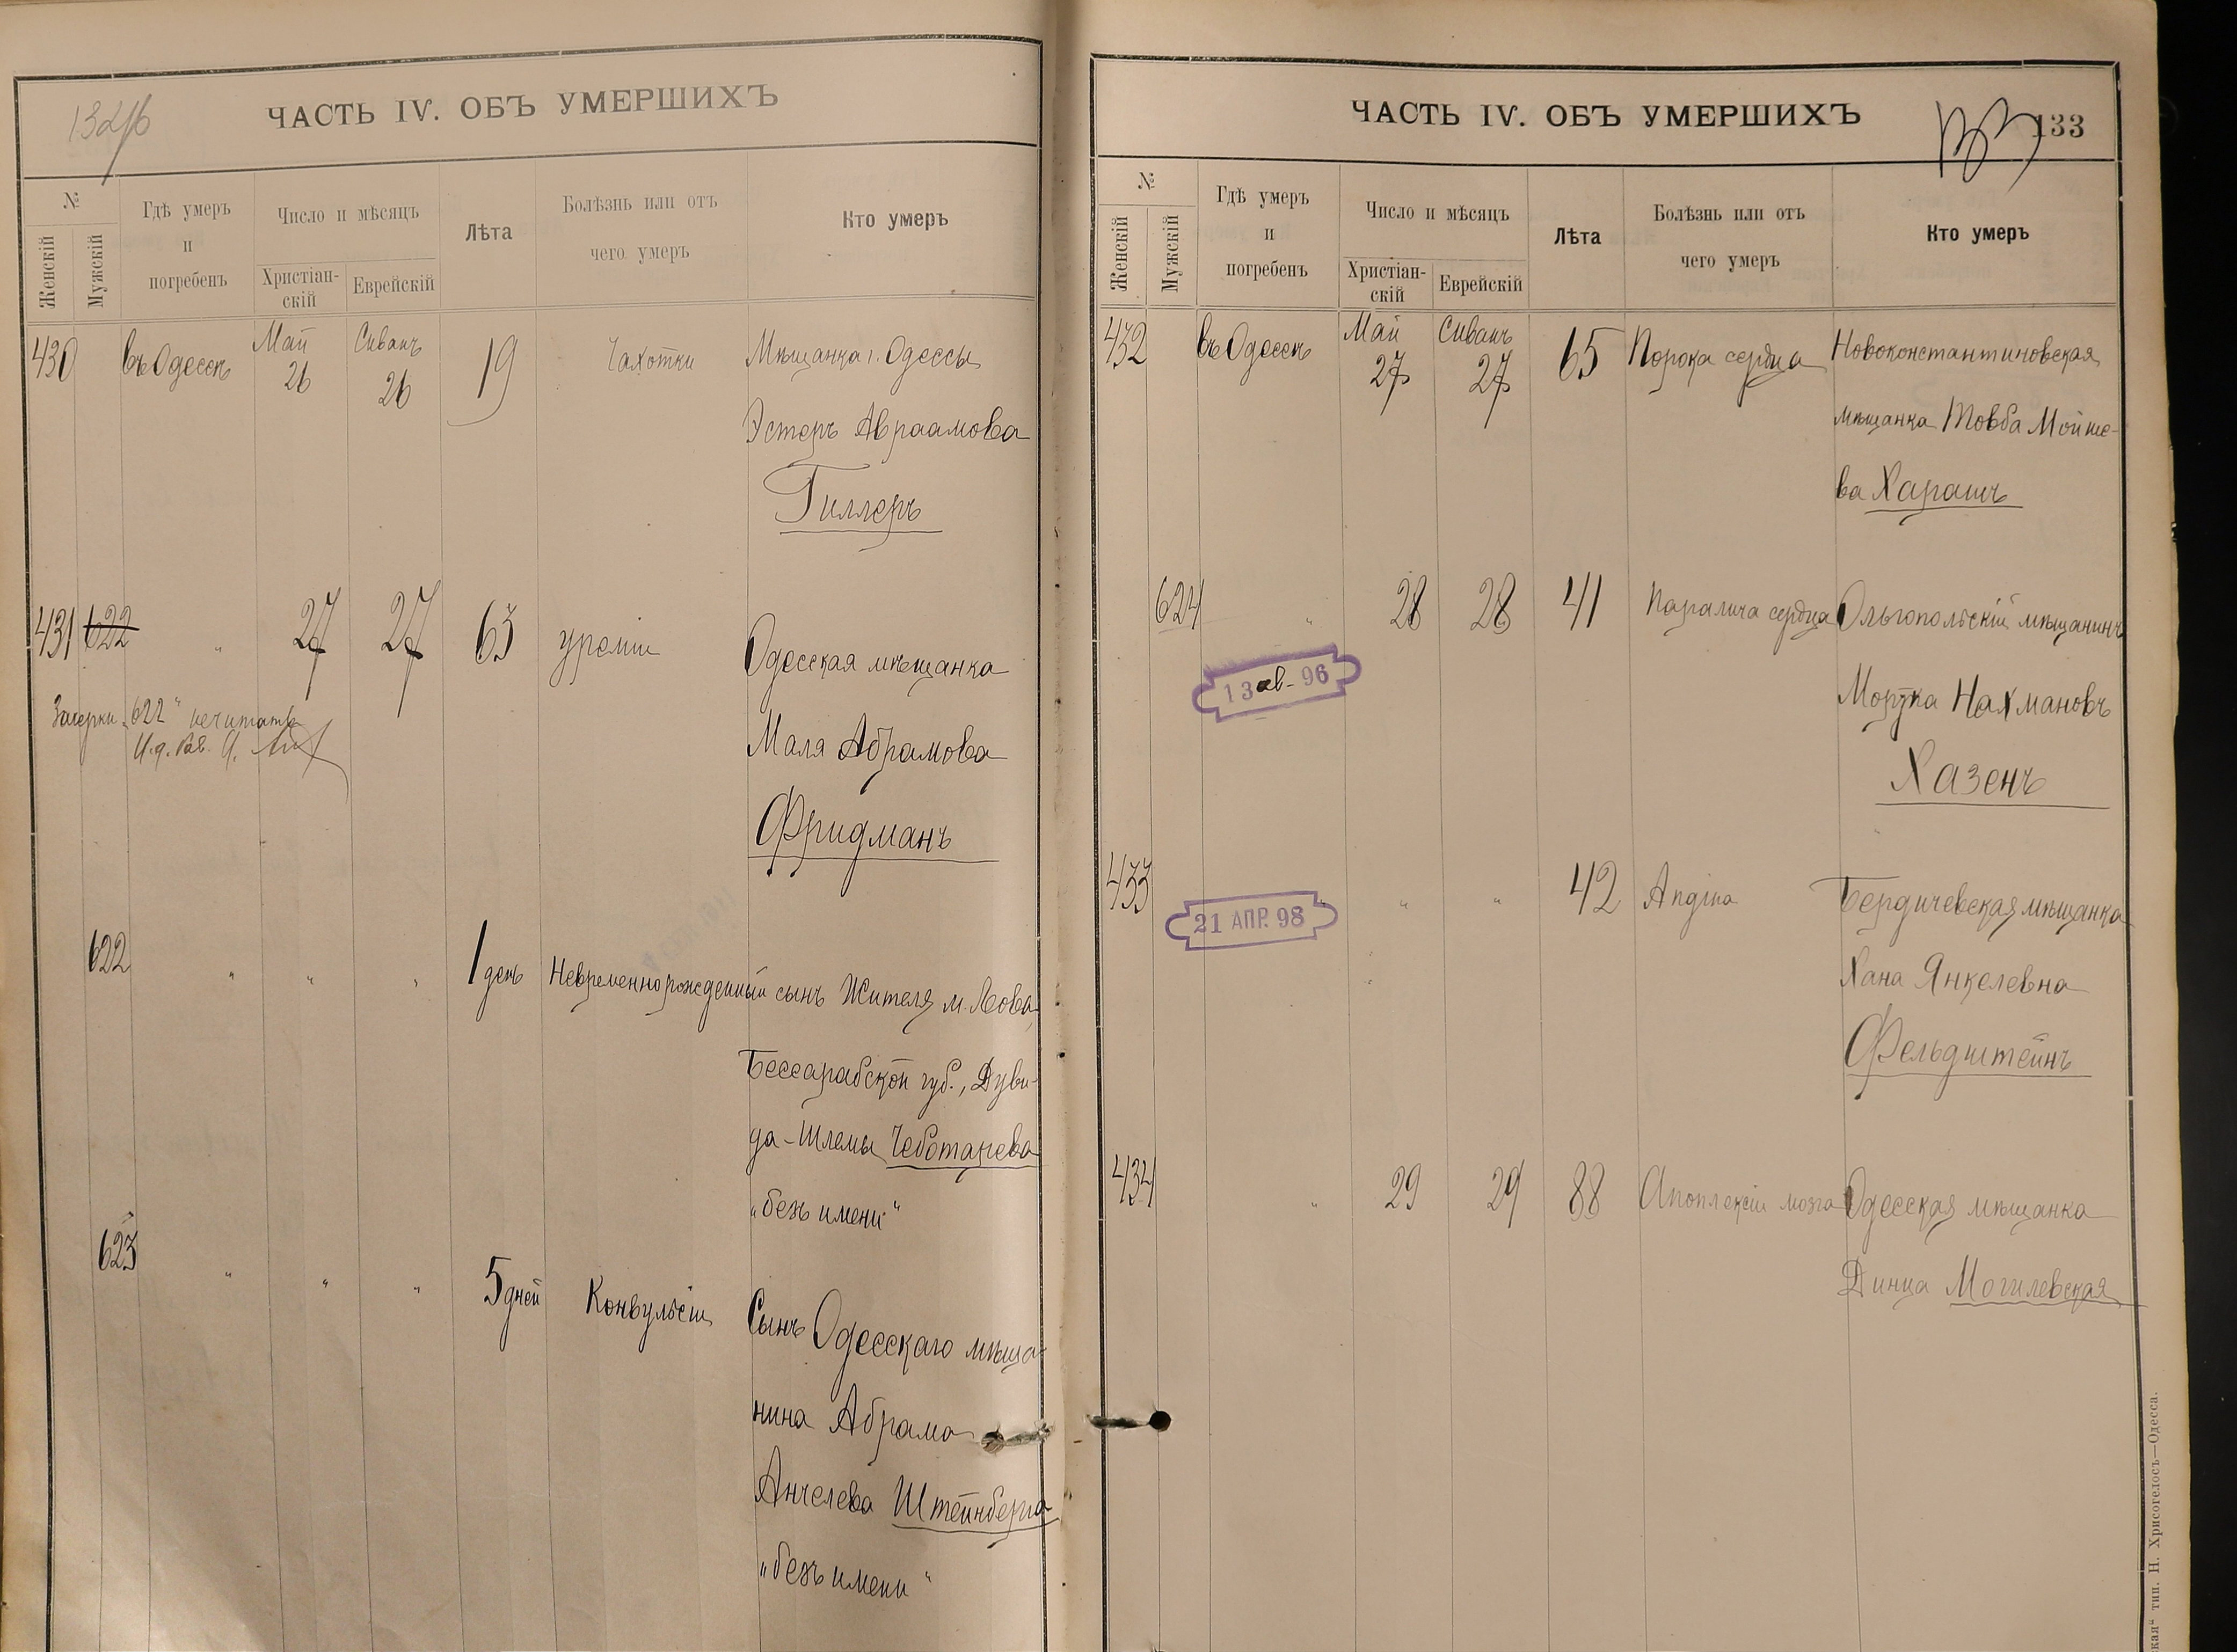 132/б
ЧАСТЬ IV. ОБЪ УМЕРШИХЪ
№
Женскій
Мужскій
Гдѣ умеръ
и
погребенъ
Число и мѣсяцъ
Христіан-
скій
Еврейскій
Лѣта
Болѣзнь или отъ
чего умеръ
Кто умеръ
430 въ Одессѣ Май 26 Сиванъ 26 19 Чахотки Мѣщанка г. Одессы
Эстеръ Авраамова
Гиллеръ
431 622 " 27 27 63 уреміи Одесская мѣщанка
Зачеркн. „622" не читать
И.д. Рав.
Маля Абрамова
Фридманъ
622 " " " 1 день Невременнорожденный сынъ Жителя м. Леова,
Бессарабской губ., Дуви-
да-Шлемы Чеботарева
„безъ имени"
623 " " " 5 дней Конвульсіи Сынъ Одесскаго мѣща-
нина Абрама
Анчелева Штейнберга
„безъ имени"
ЧАСТЬ IV. ОБЪ УМЕРШИХЪ
133
133
№
Женскій
Мужскій
Гдѣ умеръ
и
погребенъ
Число и мѣсяцъ
Христіан-
скій
Еврейскій
Лѣта
Болѣзнь или отъ
чего умеръ
Кто умеръ
432 въ Одессѣ Май 27 Сиванъ 27 65 Порока сердца Новоконстантиновская
мѣщанка Товба Мойше-
ва Харашъ
624 " 28 28 41 Паралича сердца Ольгопольскій мѣщанинъ
13 ав- 96
Мортка Нахмановъ
Хазенъ
433 " " " 42 Angina Бердичевская мѣщанка
21 АПР. 98
Хана Янкелевна
Фельдштейнъ
434 " 29 29 88 Апоплексіи мозга Одесская мѣщанка
Динца Могилевская
кая" тип. Н. Хрисогелосъ—Одесса.